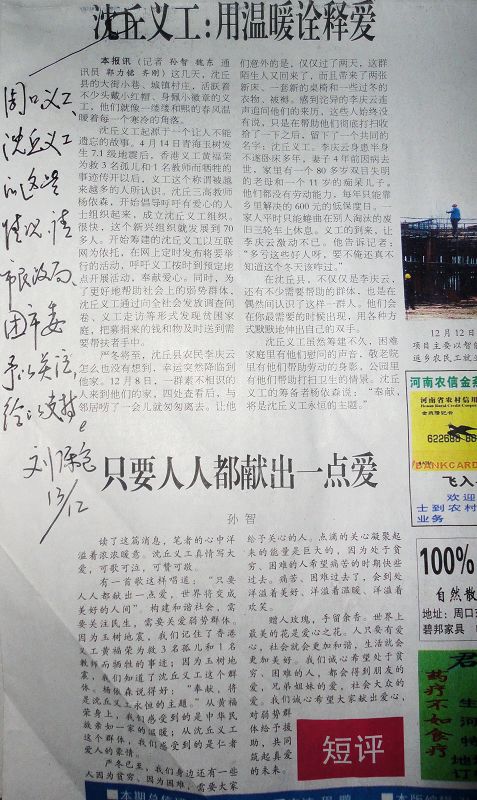 沈丘义工:用温暖诠释爱
本报讯（记者 孙智 魏东 通
讯员 郭力铭 齐刚）这几天，沈丘
县的大街小巷、城镇村庄，活跃着
不少头戴小红帽、身佩小徽章的义
工，他们就像一缕缕和熙的春风温
暖着每一个寒冷的角落。
沈丘义工起源于一个让人不能
遗忘的故事。4月14日青海玉树发
生7.1级地震后，香港义工黄福荣
为救3名孤儿和1名教师而牺牲的
事迹传开以后，义工这个称谓被越
来越多的人所认识。沈丘三高教师
杨依森，开始倡导呼吁有爱心的人
士组织起来，成立沈丘义工组织。
很快，这个新兴组织就发展到70
多人。开始筹建的沈丘义工以互联
网为依托，在网上定时发布将要举
行的活动，呼吁义工按时到预定地
点开展活动，奉献爱心。同时，为
了更好地帮助社会上的弱势群体，
沈丘义工通过向全社会发放调查问
卷、义工走访等形式发现贫困家
庭，把募捐来的钱和物及时送到需
要帮扶者手中。
严冬将至，沈丘县农民李庆云
怎么也没有想到，幸运突然降临到
他家。12月8日，一群素不相识的
人来到他们的家，四处查看后，与
邻居唠了一会儿就匆匆离去。让他
们意外的是，仅仅过了两天，这群
陌生人又回来了，而且带来了两张
新床、一套新的桌椅和一些过冬的
衣物、被褥。感到诧异的李庆云连
声追问他们的来历，这些人始终没
有说，只是在帮助他们彻底打扫收
拾了一下之后，留下了一个共同的
名字：沈丘义工。李庆云身患半身
不遂卧床多年，妻子4年前因病去
世，家里有一个80多岁双目失明
的老母和一个11岁的痴呆儿子。
他们都没有劳动能力，每年只能靠
乡里解决的600元的低保度日。一
家人平时只能蜷曲在别人淘汰的废
旧三轮车上休息。义工的到来，让
李庆云激动不已。他告诉记者：
“多亏这些好人呀，要不俺还真不
知道这个冬天该咋过。”
在沈丘县，不仅仅是李庆云，
还有不少需要帮助的群体，也是在
偶然间认识了这样一群人。他们会
在你最需要的时候出现，用各种方
式默默地伸出自己的双手。
沈丘义工虽然筹建不久，困难
家庭里有他们慰问的声音，敬老院
里有他们帮助劳动的身影，公园里
有他们帮助打扫卫生的情景。沈丘
义工的筹备者杨依森说：“奉献，
将是沈丘义工永恒的主题。”
周口义工、
沈丘义工
的这些
情况请
市民政局、
团市委
予以关注
给以支持。
13/12
只要人人都献出一点爱
孙智
读了这篇消息，笔者的心中洋
溢着浓浓暖意。沈丘义工真情写大
爱，可歌可泣，可赞可敬。
有一首歌这样唱道：“只要
人人都献出一点爱，世界将变成
美好的人间”。构建和谐社会，需
要关注民生，需要关爱弱势群体。
因为玉树地震，我们记住了香港义
工黄福荣为救3名孤儿和1名
教师而牺牲的事迹；因为玉树地
震，我们知道了沈丘义工这个群
体。杨依森说得好：“奉献，将
是沈丘义工永恒的主题。”从黄福
荣身上，我们感受到的是中华民
族亲如一家的温暖；从沈丘义工
这个群体，我们感受到的是仁者
爱人的豪情。
严冬已至，我们身边还有一些
人因为贫穷、因为困难，需要大家
给予关心的人。点滴的关心凝聚起
来的能量是巨大的，因为处于贫
穷、困难的人希望痛苦的时期快些
过去。痛苦、困难过去了，会到处
洋溢着美好、洋溢着温暖、洋溢着
欢笑。
赠人玫瑰，手留余香。世界上
最美的花是爱心之花。人只要有爱
心，社会就会更加和谐，生活就会
更加美好。我们诚心希望处于贫
穷、困难的人，都会得到朋友的
爱，兄弟姐妹的爱，社会大众的
爱。我们诚心希望大家献出爱心，
对弱势群
体给予援
助，共同
筑起真爱
的未来。
短评
12月12日
项目主要以智能
返乡农民工就业
河南农信金燕
河南省农村信用
622688 88
BANKCARD
飞入
欢迎
士到农村
业务
100%
自然散
地址：周口
碧邦家具
药疗不如食疗